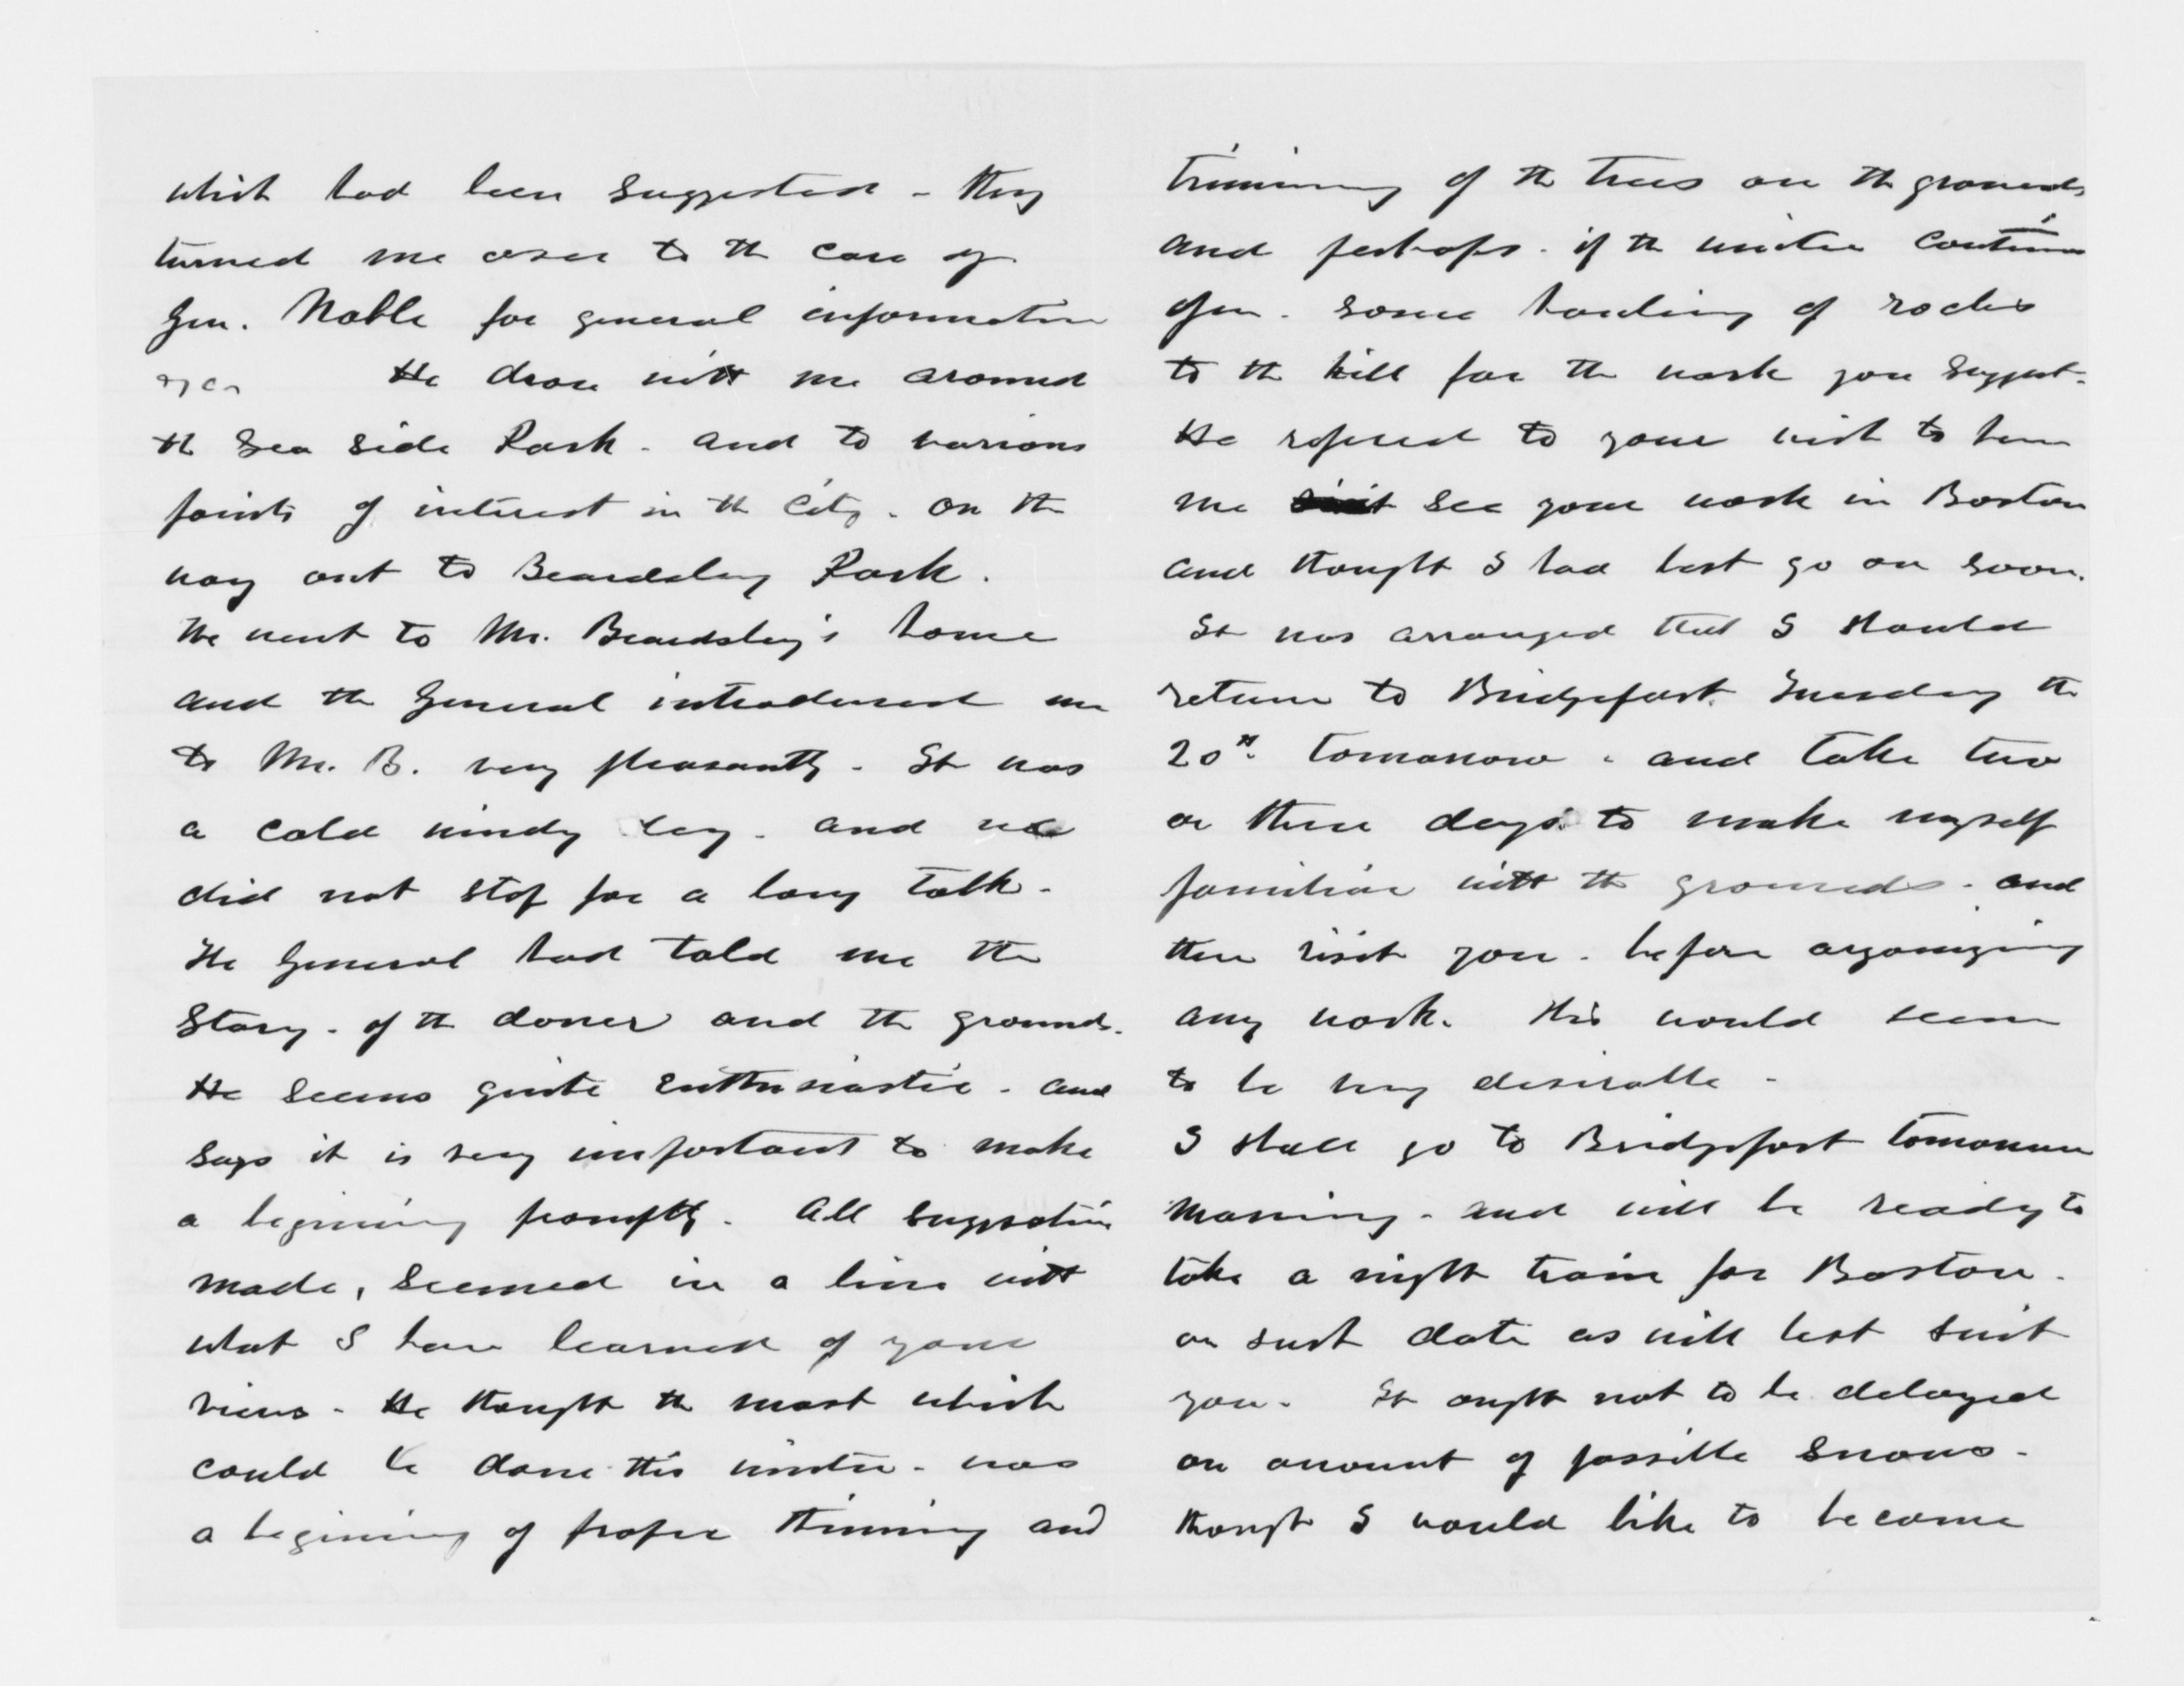 which had been suggested - they
turned me over to the care of
Gen. Noble for general information
&c. He drove with me around
the Sea Side Park - and to various
points of interest in the City - on the
way out to Beardsley Park.
We went to Mr. Beardsley's home
and the General introduced me
to Mr. B. very pleasantly - It was
a cold windy day - and we
did not stop for a long talk -
The General had told me the
Story - of the doner and the grounds.
He seems quite enthusiastic - and
says it is very important to make
a begining promptly - All suggestions
made, seemed in a line with
what I have learned of your
views - He thought the most which
could be done this winter - was
a begining of proper thinning and
trimming of the trees on the grounds
and perhaps - if the winter continues
open - some hauling of rocks
to the hill for the work you suggest -
He refered to your wish to have
me see your work in Boston
and thought I had best go on soon.
It was arranged that I should
return to Bridgeport Tuesday the
20th tomorrow - and take two
or three days to make myself
familiar with the grounds - and
then visit you - before organizing
any work. This would seem
to be very desirable -
I shall go to Bridgeport tomorrow
morning - and will be ready to
take a night train for Boston -
on such date as will best suit
you - It ought not to be delayed
on account of possible snows -
though I would like to become